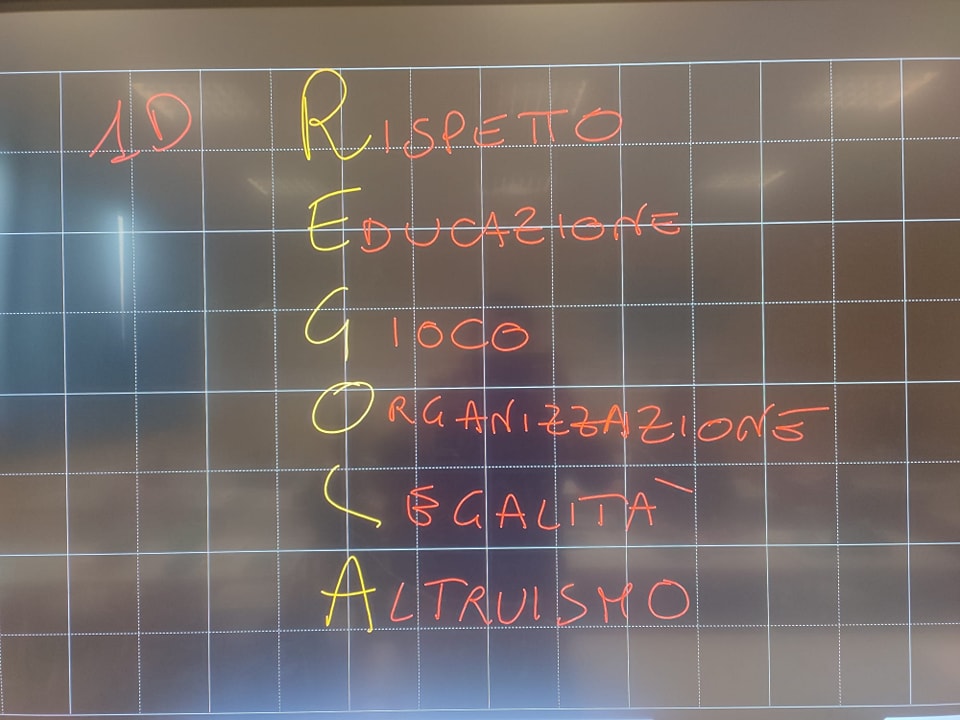 1D RISPETTO
EDUCAZIONE
GIOCO
ORGANIZZAZIONE
LEGALITÀ
ALTRUISMO